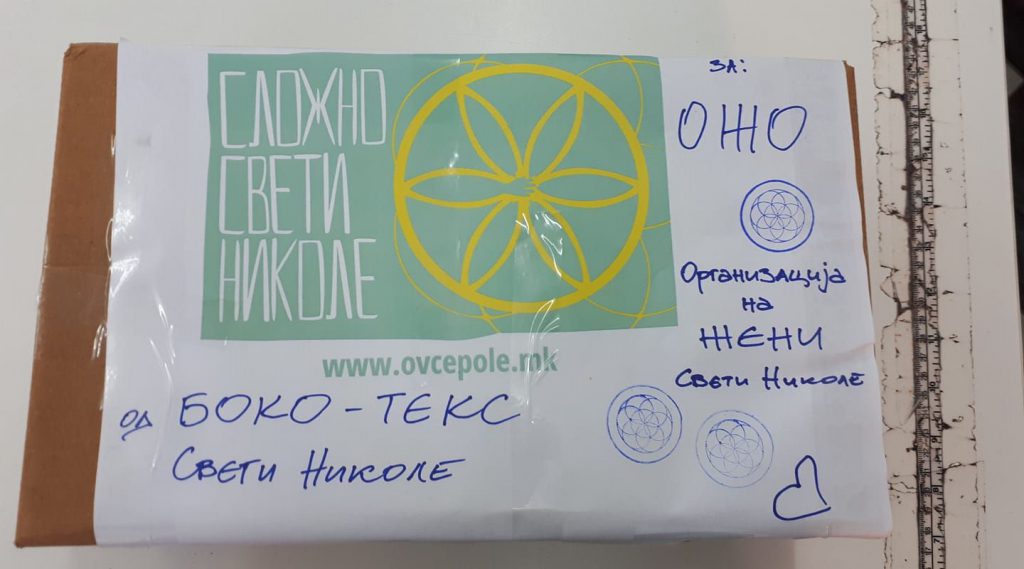 СЛОЖНО
СВЕТИ
НИКОЛЕ
www.ovcepole.mk
од БОКО - ТЕКС
Свети Николе
За:
ОЖО
Организација
на
ЖЕНИ
Свети Николе